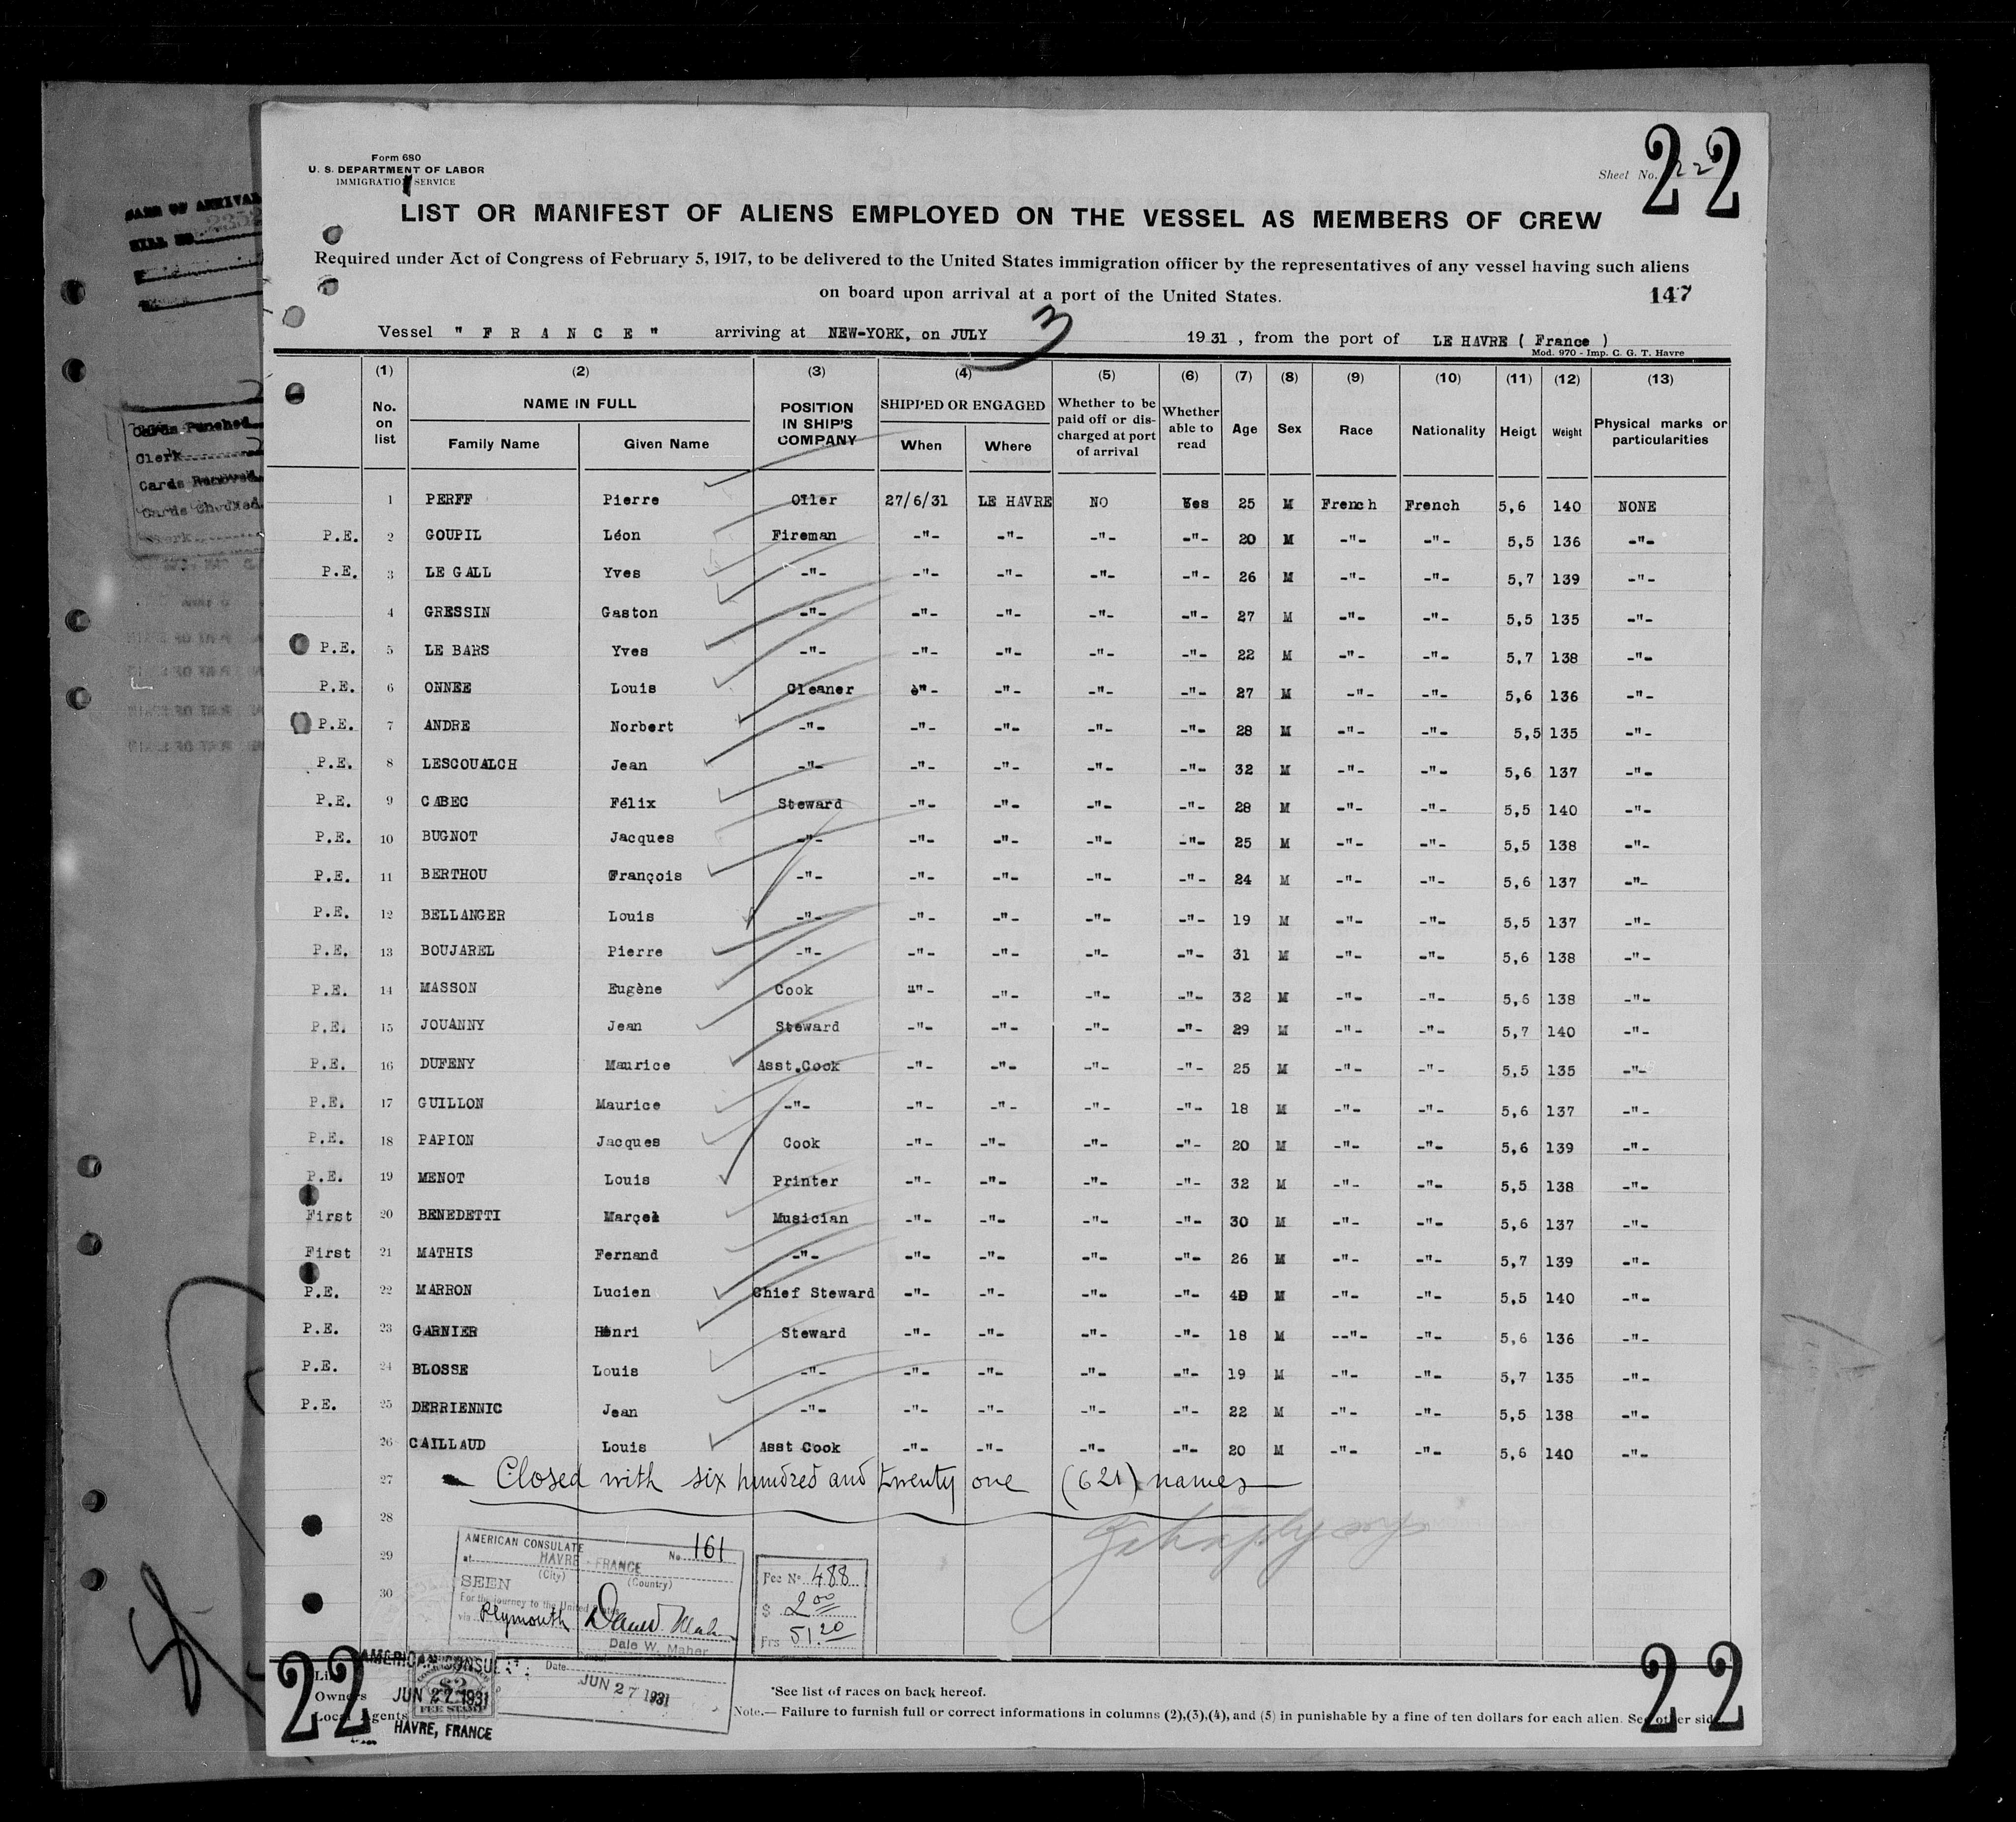 Form 680
U. S. DEPARTMENT OF LABOR
IMMIGRATION SERVICE
Sheet No. 22
22
LIST OR MANIFEST OF ALIENS EMPLOYED ON THE VESSEL AS MEMBERS OF CREW
Required under Act of Congress of February 5, 1917, to be delivered to the United States immigration officer by the representatives of any vessel having such aliens
on board upon arrival at a port of the United States.
147
Vessel " F R A N C E " arriving at NEW-YORK, on JULY 3 1931, from the port of LE HAVRE ( France )
Mod. 970 - Imp. C. G. T. Havre
(1) (2) (3) (4) (5) (6) (7) (8) (9) (10) (11) (12) (13)
No. on list NAME IN FULL Family Name Given Name POSITION IN SHIP'S COMPANY SHIPPED OR ENGAGED When Where Whether to be paid off or discharged at port of arrival Whether able to read Age Sex Race Nationality Heigt Weight Physical marks or particularities
1 PERFF Pierre Oiler 27/6/31 LE HAVRE NO Yes 25 M French French 5,6 140 NONE
P.E. 2 GOUPIL Léon Fireman -"- -"- -"- -"- 20 M -"- -"- 5,5 136 -"-
P.E. 3 LE GALL Yves -"- -"- -"- -"- -"- 26 M -"- -"- 5,7 139 -"-
4 GRESSIN Gaston -"- -"- -"- -"- -"- 27 M -"- -"- 5,5 135 -"-
P.E. 5 LE BARS Yves -"- -"- -"- -"- -"- 22 M -"- -"- 5,7 138 -"-
P.E. 6 ONNEE Louis Cleaner -"- -"- -"- -"- 27 M -"- -"- 5,6 136 -"-
P.E. 7 ANDRE Norbert -"- -"- -"- -"- -"- 28 M -"- -"- 5,5 135 -"-
P.E. 8 LESCOUALCH Jean -"- -"- -"- -"- -"- 32 M -"- -"- 5,6 137 -"-
P.E. 9 CABEC Félix Steward -"- -"- -"- -"- 28 M -"- -"- 5,5 140 -"-
P.E. 10 BUGNOT Jacques -"- -"- -"- -"- -"- 25 M -"- -"- 5,5 138 -"-
P.E. 11 BERTHOU François -"- -"- -"- -"- -"- 24 M -"- -"- 5,6 137 -"-
P.E. 12 BELLANGER Louis -"- -"- -"- -"- -"- 19 M -"- -"- 5,5 137 -"-
P.E. 13 BOUJAREL Pierre -"- -"- -"- -"- -"- 31 M -"- -"- 5,6 138 -"-
P.E. 14 MASSON Eugène Cook "- -"- -"- -"- 32 M -"- -"- 5,6 138 -"-
P.E. 15 JOUANNY Jean Steward -"- -"- -"- -"- 29 M -"- -"- 5,7 140 -"-
P.E. 16 DUFENY Maurice Asst.Cook -"- -"- -"- -"- 25 M -"- -"- 5,5 135 -"-
P.E. 17 GUILLON Maurice -"- -"- -"- -"- -"- 18 M -"- -"- 5,6 137 -"-
P.E. 18 PAPION Jacques Cook -"- -"- -"- -"- 20 M -"- -"- 5,6 139 -"-
P.E. 19 MENOT Louis Printer -"- -"- -"- -"- 32 M -"- -"- 5,5 138 -"-
First 20 BENEDETTI Marcel Musician -"- -"- -"- -"- 30 M -"- -"- 5,6 137 -"-
First 21 MATHIS Fernand -"- -"- -"- -"- -"- 26 M -"- -"- 5,7 139 -"-
P.E. 22 MARRON Lucien Chief Steward -"- -"- -"- -"- 40 M -"- -"- 5,5 140 -"-
P.E. 23 GARNIER Henri Steward -"- -"- -"- -"- 18 M --"- -"- 5,6 136 -"-
P.E. 24 BLOSSE Louis -"- -"- -"- -"- -"- 19 M -"- -"- 5,7 135 -"-
P.E. 25 DERRIENNIC Jean -"- -"- -"- -"- -"- 22 M -"- -"- 5,5 138 -"-
26 CAILLAUD Louis Asst Cook -"- -"- -"- -"- 20 M -"- -"- 5,6 140 -"-
27 Closed with six hundred and twenty one (621) names
28
29
30
AMERICAN CONSULATE No. 161
at HAVRE - FRANCE
(City) (Country)
SEEN
For the journey to the United States
via Plymouth
Dale W. Maher
Date JUN 27 1931
Fee No 488
$ 2 00
Frs 51.20
AMERICAN CONSUL
JUN 27 1931
HAVRE, FRANCE
$2
FEE STAMP
22
Owners
Local Agents
*See list of races on back hereof.
Note.— Failure to furnish full or correct informations in columns (2),(3),(4), and (5) in punishable by a fine of ten dollars for each alien. See other side
22
Cards Punched
Clerk
Cards Removed
Cards Checked